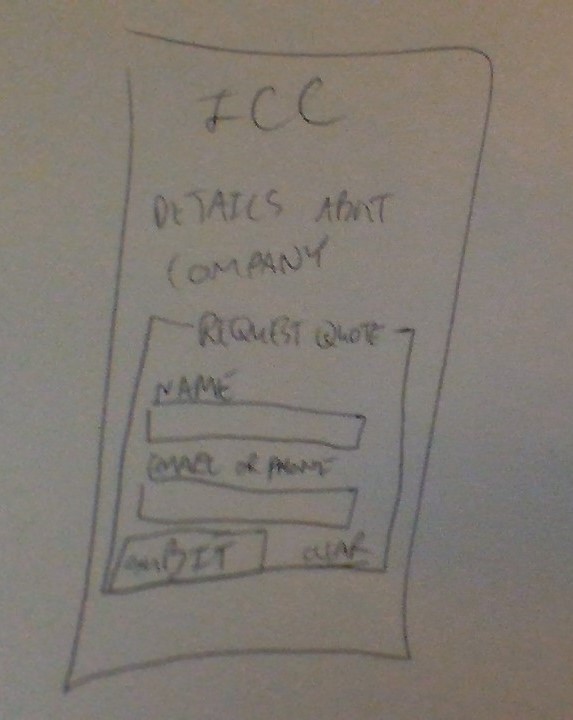 ICC
DETAILS ABOUT
COMPANY
REQUEST QUOTE
NAME
EMAIL OR PHONE
SUMBIT
CLEAR